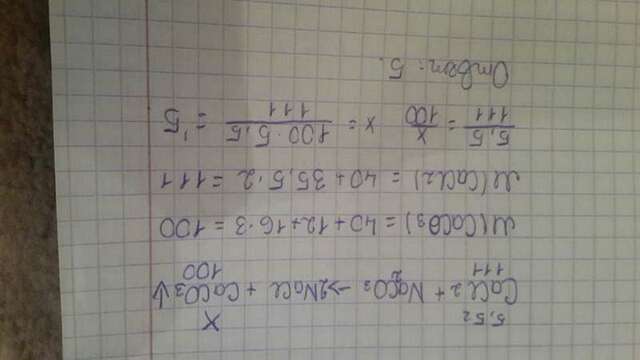 5,5г X
CaCl2 + Na2CO3 → 2NaCl + CaCO3↓
111 100
M(CaCO3) = 40+12+16·3 = 100
M(CaCl2) = 40+35,5·2 = 111
5,5/111 = x/100 x = 100·5,5/111 = 5
Ответ: 5.